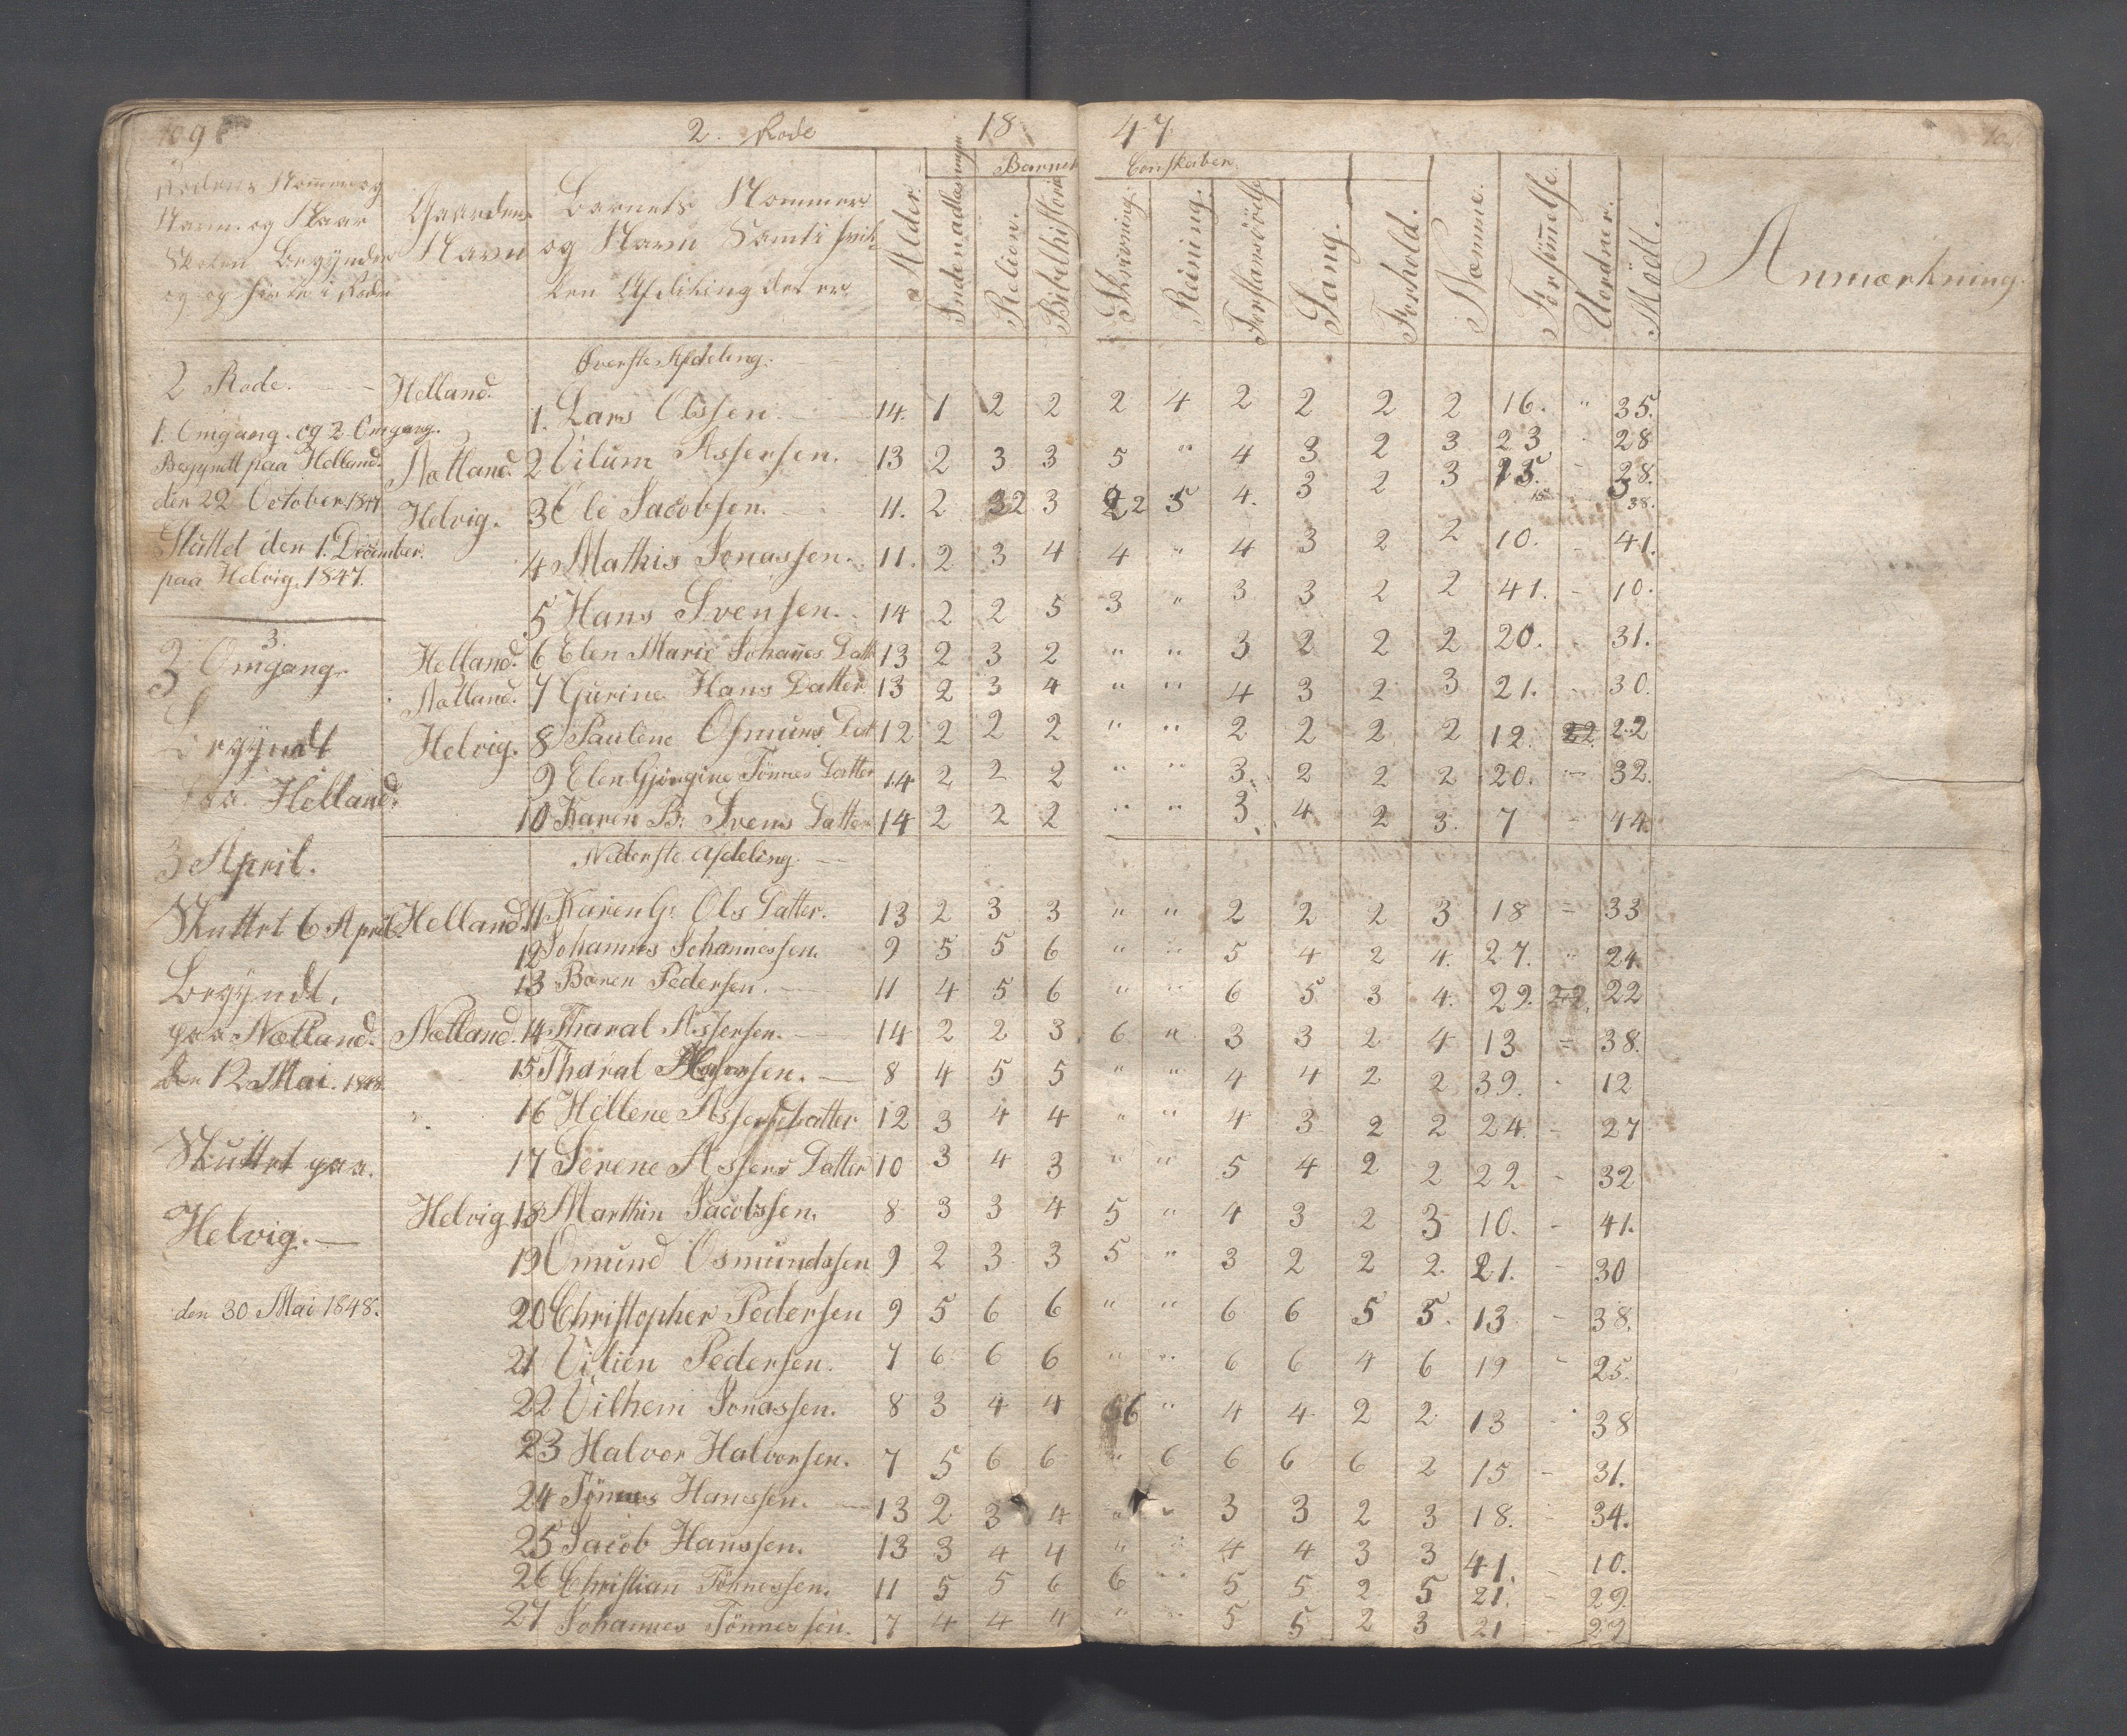 2. Rode 18 47
Rodens Nommer og
Navn. og Naar
Skolen Begynder
og og Slutte i Roden
Gaardens
Navn
Barnets Nommer
og Navn Samt i hvil-
ken Afdeling det er.
Alder.
Barnets Conskaber.
Indenadlæsning
Relion.
Bibelhistorie
Skrivning.
Reining.
Forstansövelse
Sang.
Forhold.
Næmme.
Forsömelse.
Uordner.
Mödt.
Anmærkning.
Øverste Afdeling.
2 Rode.
1. Omgang. og 2. Omgang.
Begyndt paa Helland.
den 22 October 1847
Sluttet den 1. December.
paa Helvig. 1847.
3.
3 Omgang.
Begyndt
paa Helland.
3 April.
Skuttet 6 April.
Begyndt.
paa Nætland.
den 12 Mai. 1848
Skuttet paa.
Helvig. —
den 30 Mai 1848.
Helland. 1. Lars Olssen. 14. 1 2 2 2 4 2 2 2 2 16. " 35.
Nætland. 2 Vilum Assersen. 13 2 3 3 5 " 4 3 2 3 23 - 28
Helvig. 3 Ole Jacobsen. 11. 2 32 3 22 5 4. 3 2 3 15. - 38.
4 Mathis Jonassen. 11. 2 3 4 4 " 4 3 2 2 10. - 41.
5 Hans Svensen. 14 2 2 5 3 " 3 3 2 2 41. - 10.
Helland. 6 Elen Marie Johanes Datt 13 2 3 2 " " 3 2 2 2 20. - 31.
Nætland. 7 Gurine Hans Datter 13 2 3 4 " " 4 3 2 3 21. - 30.
Helvig. 8 Pauline Osmuns Dat 12 2 2 2 " " 2 2 2 2 12. 22 22
9 Elen Gjörgine Tönnes Datter 14 2 2 2 " " 3. 2 2 2 20. - 32.
10 Karen B. Svens Datter 14 2 2 2 " " 3 4 2 3. 7 - 44.
Nederste Afdeling. —
Helland. 11 Karen G. Ols Datter. 13 2 3 3 " " 2 2 2 3 18 = 33
12 Johannes Johannessen. 9 5 5 6 " " 5 4 2 4. 27. " 24.
13 Bæren Pedersen. 11 4 5 6 " " 6 5 3 4. 29. 22 22
Nætland. 14 Tharal Assersen. 14 2 2 3 6 " 3 3 2 4 13 = 38.
15 Tharal Hansen. — 8 4 5 5 " " 4 4 2 2 39. - 12
16 Hellene Assers Datter 12 3 4 4 " " 4 3 2 2 24 - 27
17 Serene Assers Datter 10 3 4 3 " " 5 4 2 2 22 - 32
Helvig 18 Marthin Jacobssen. 8 3 3 4 5 " 4 3 2 3 10. - 41.
19 Omund Osmundssen 9 2 3 3 5 " 3 2 2 2. 21. - 30
20 Christopher Pedersen 9 5 6 6 " " 6 6 5 5. 13 - 38.
21 Vilien Pedersen. 7 6 6 6 " " 6 6 4 6 19 - 25.
22 Vilhem Jonassen. 8 3 4 4 6 " 4 4 2 2 13 - 38
23 Halvor Halvorsen. 7 5 6 6 " 6 6 6 6 2 15 - 31.
24 Tönnes Hanssen. — 13 2 3 4 " " 3 3 2 3 18. - 34.
25 Jacob Hanssen. 13 3 4 4 " " 4 4 3 3 41. - 10.
26 Christian Tönnessen. 11 5 5 6 6 " 5 5 2 5 21. - 29.
27 Johannes Tönnessen. 7 4 4 4 " " 5 5 2 3 21 - 29